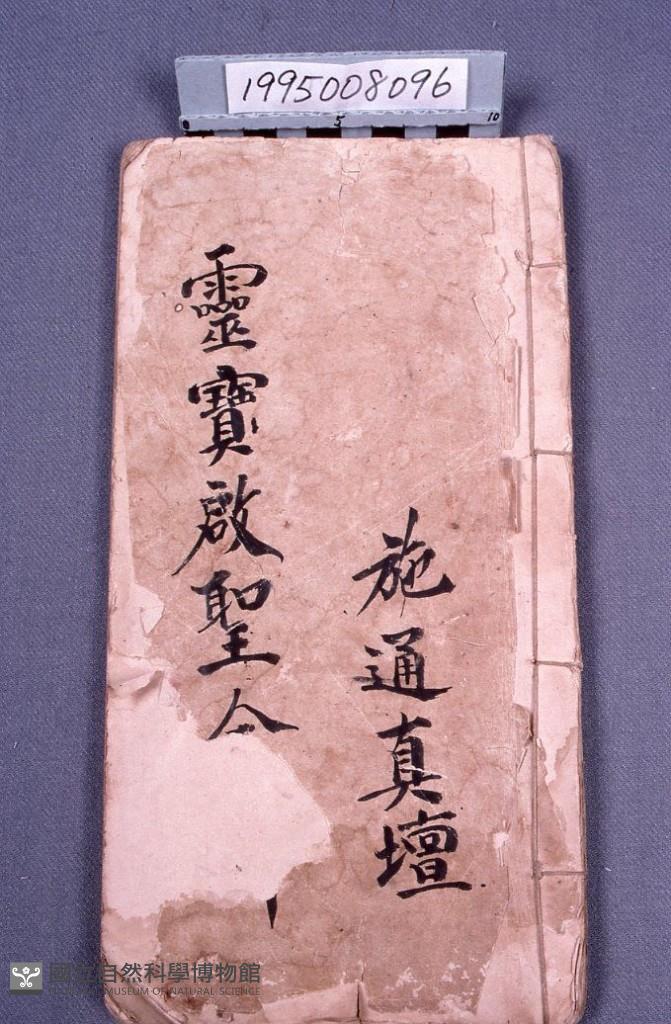 1995008096
0 5 10
施通真壇
靈寶啟聖
國立自然科學博物館
MUSEUM OF NATURAL SCIENCE